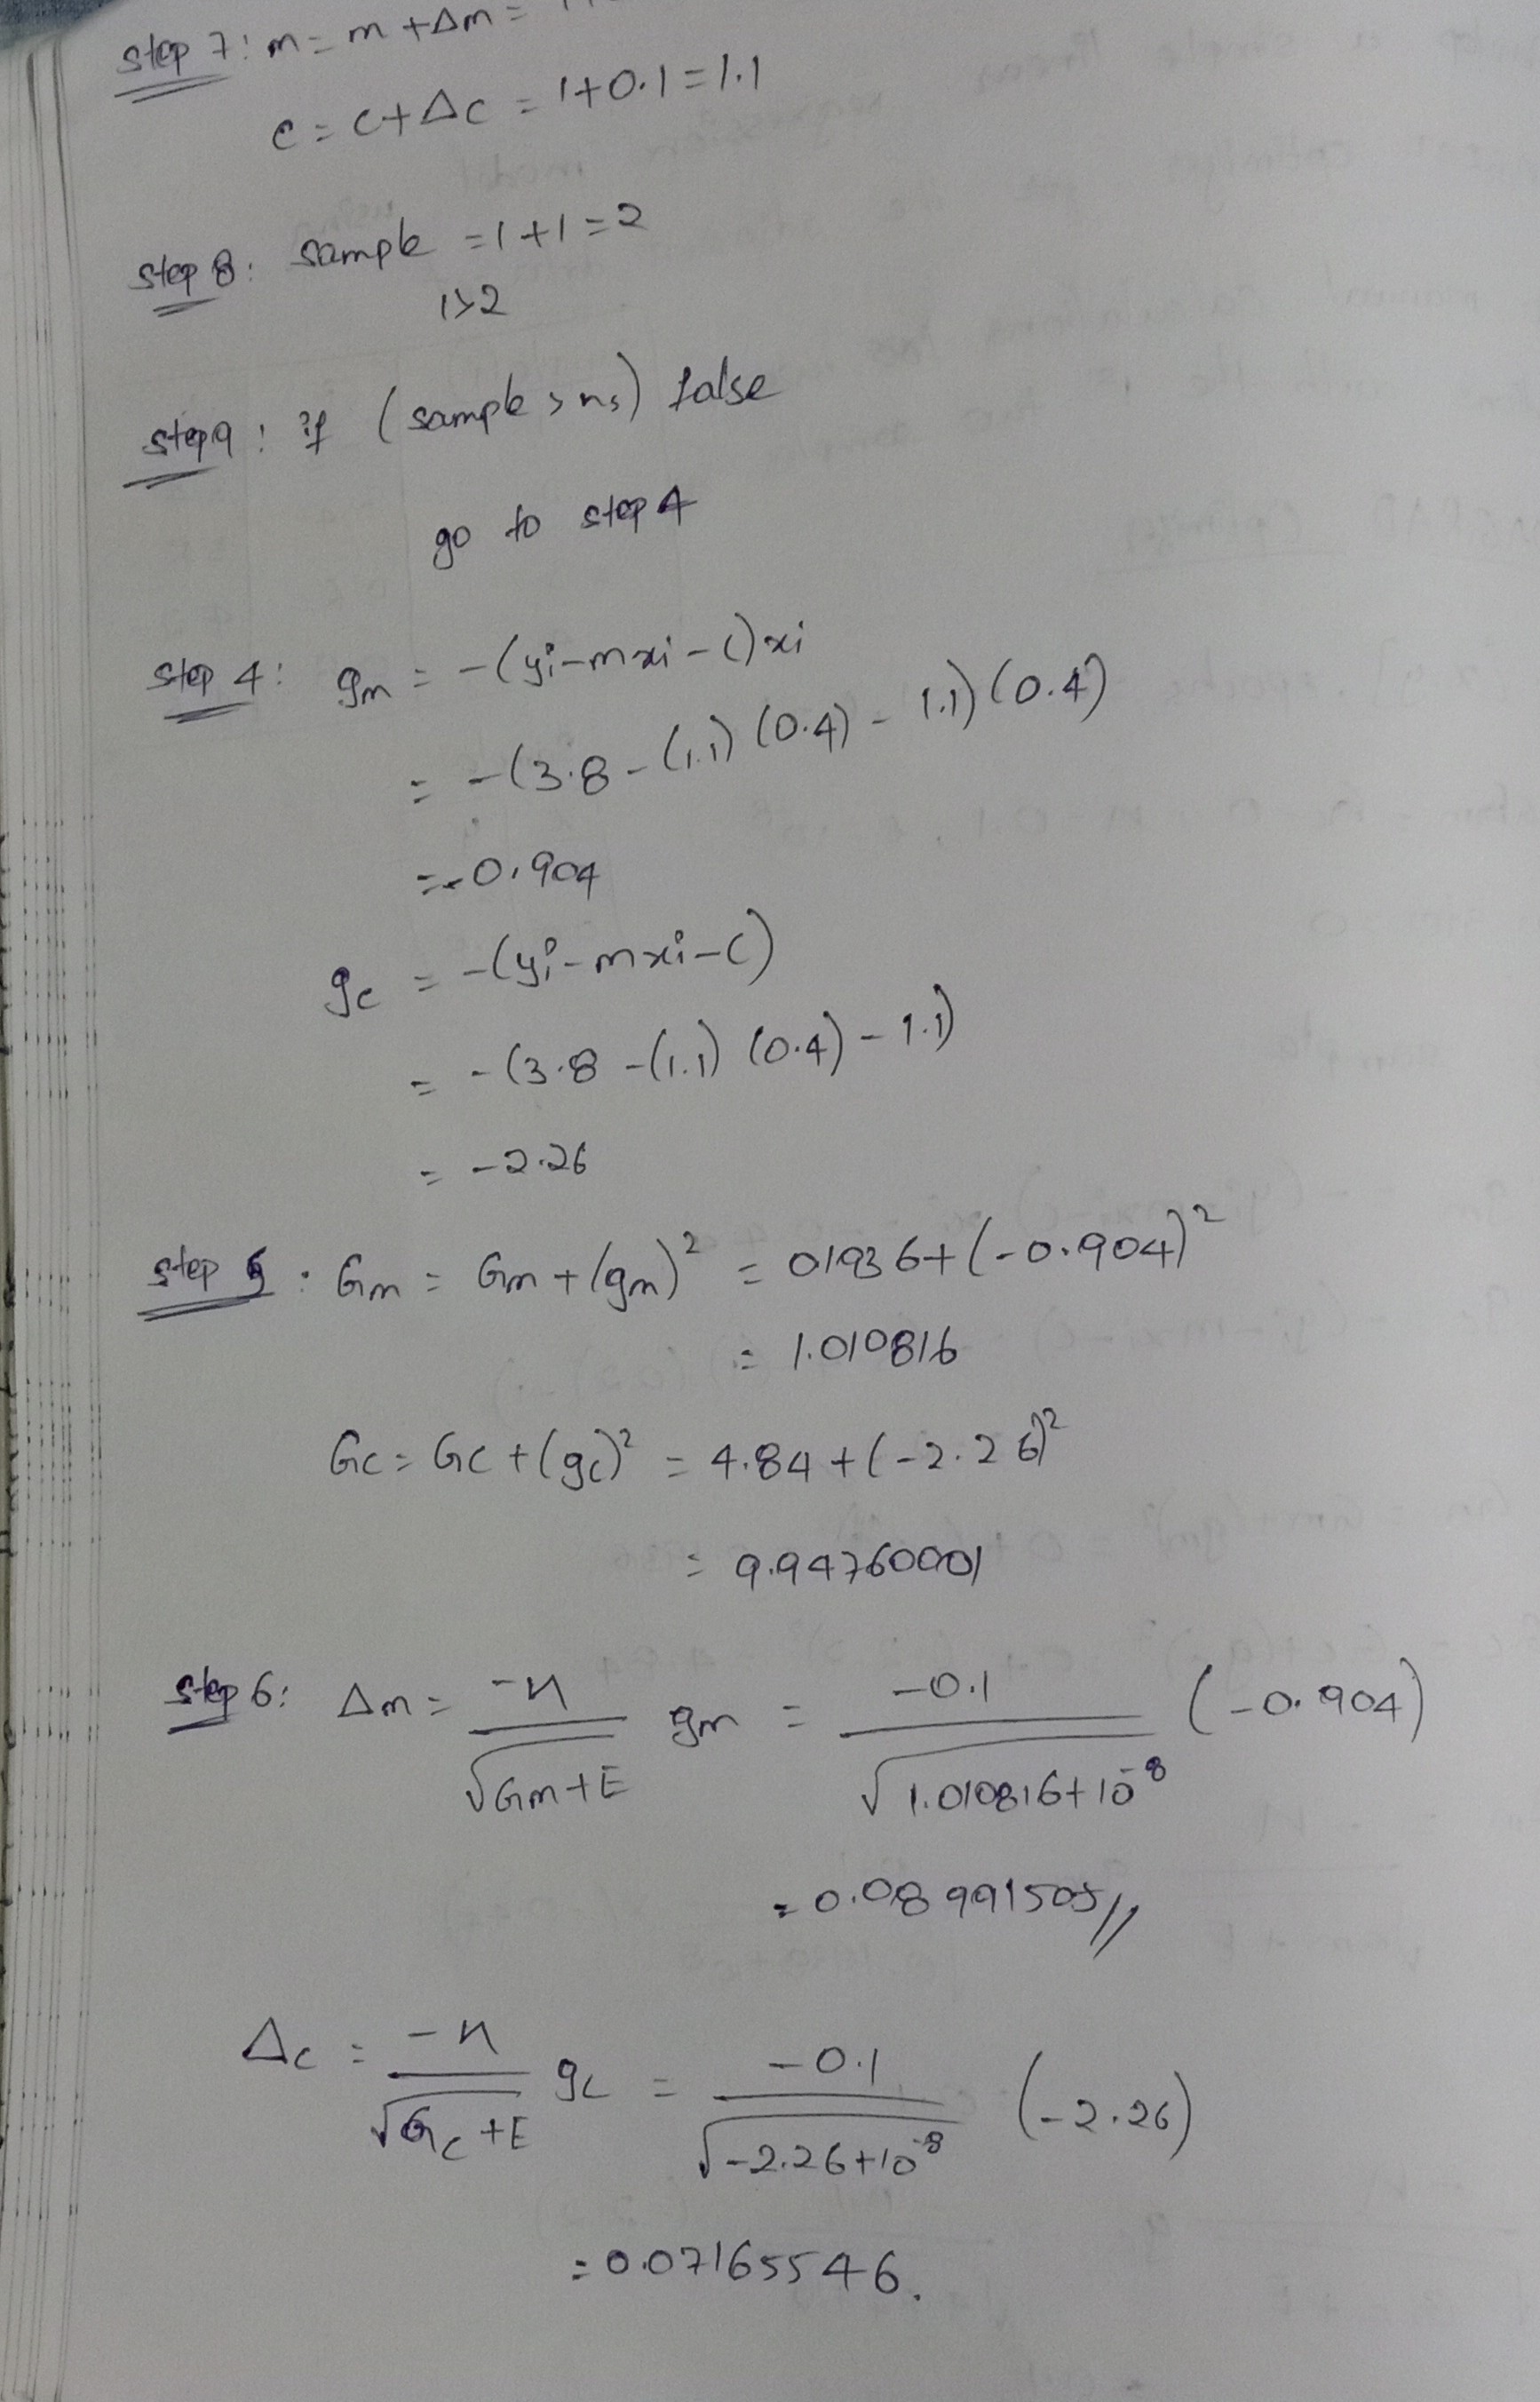 step 7: m = m + Δm =
c = c + Δc = 1+0.1 = 1.1
step 8: sample = 1+1 = 2
1>2
step 9: if (sample > ns) false
go to step 4
step 4: gm = -(yi-mxi-c)xi
= -(3.8-(1.1)(0.4)-1.1)(0.4)
= -0.904
gc = -(yi-mxi-c)
= -(3.8-(1.1)(0.4)-1.1)
= -2.26
step 5: Gm = Gm+(gm)² = 01936+(-0.904)²
= 1.010816
Gc = Gc+(gc)² = 4.84+(-2.26)²
= 9.94760001
step 6: Δm = -η/√Gm+E gm = -0.1/√1.010816+10⁻⁸ (-0.904)
= 0.08991505//
Δc = -η/√Gc+E gc = -0.1/√-2.26+10⁻⁸ (-2.26)
= 0.07165546.